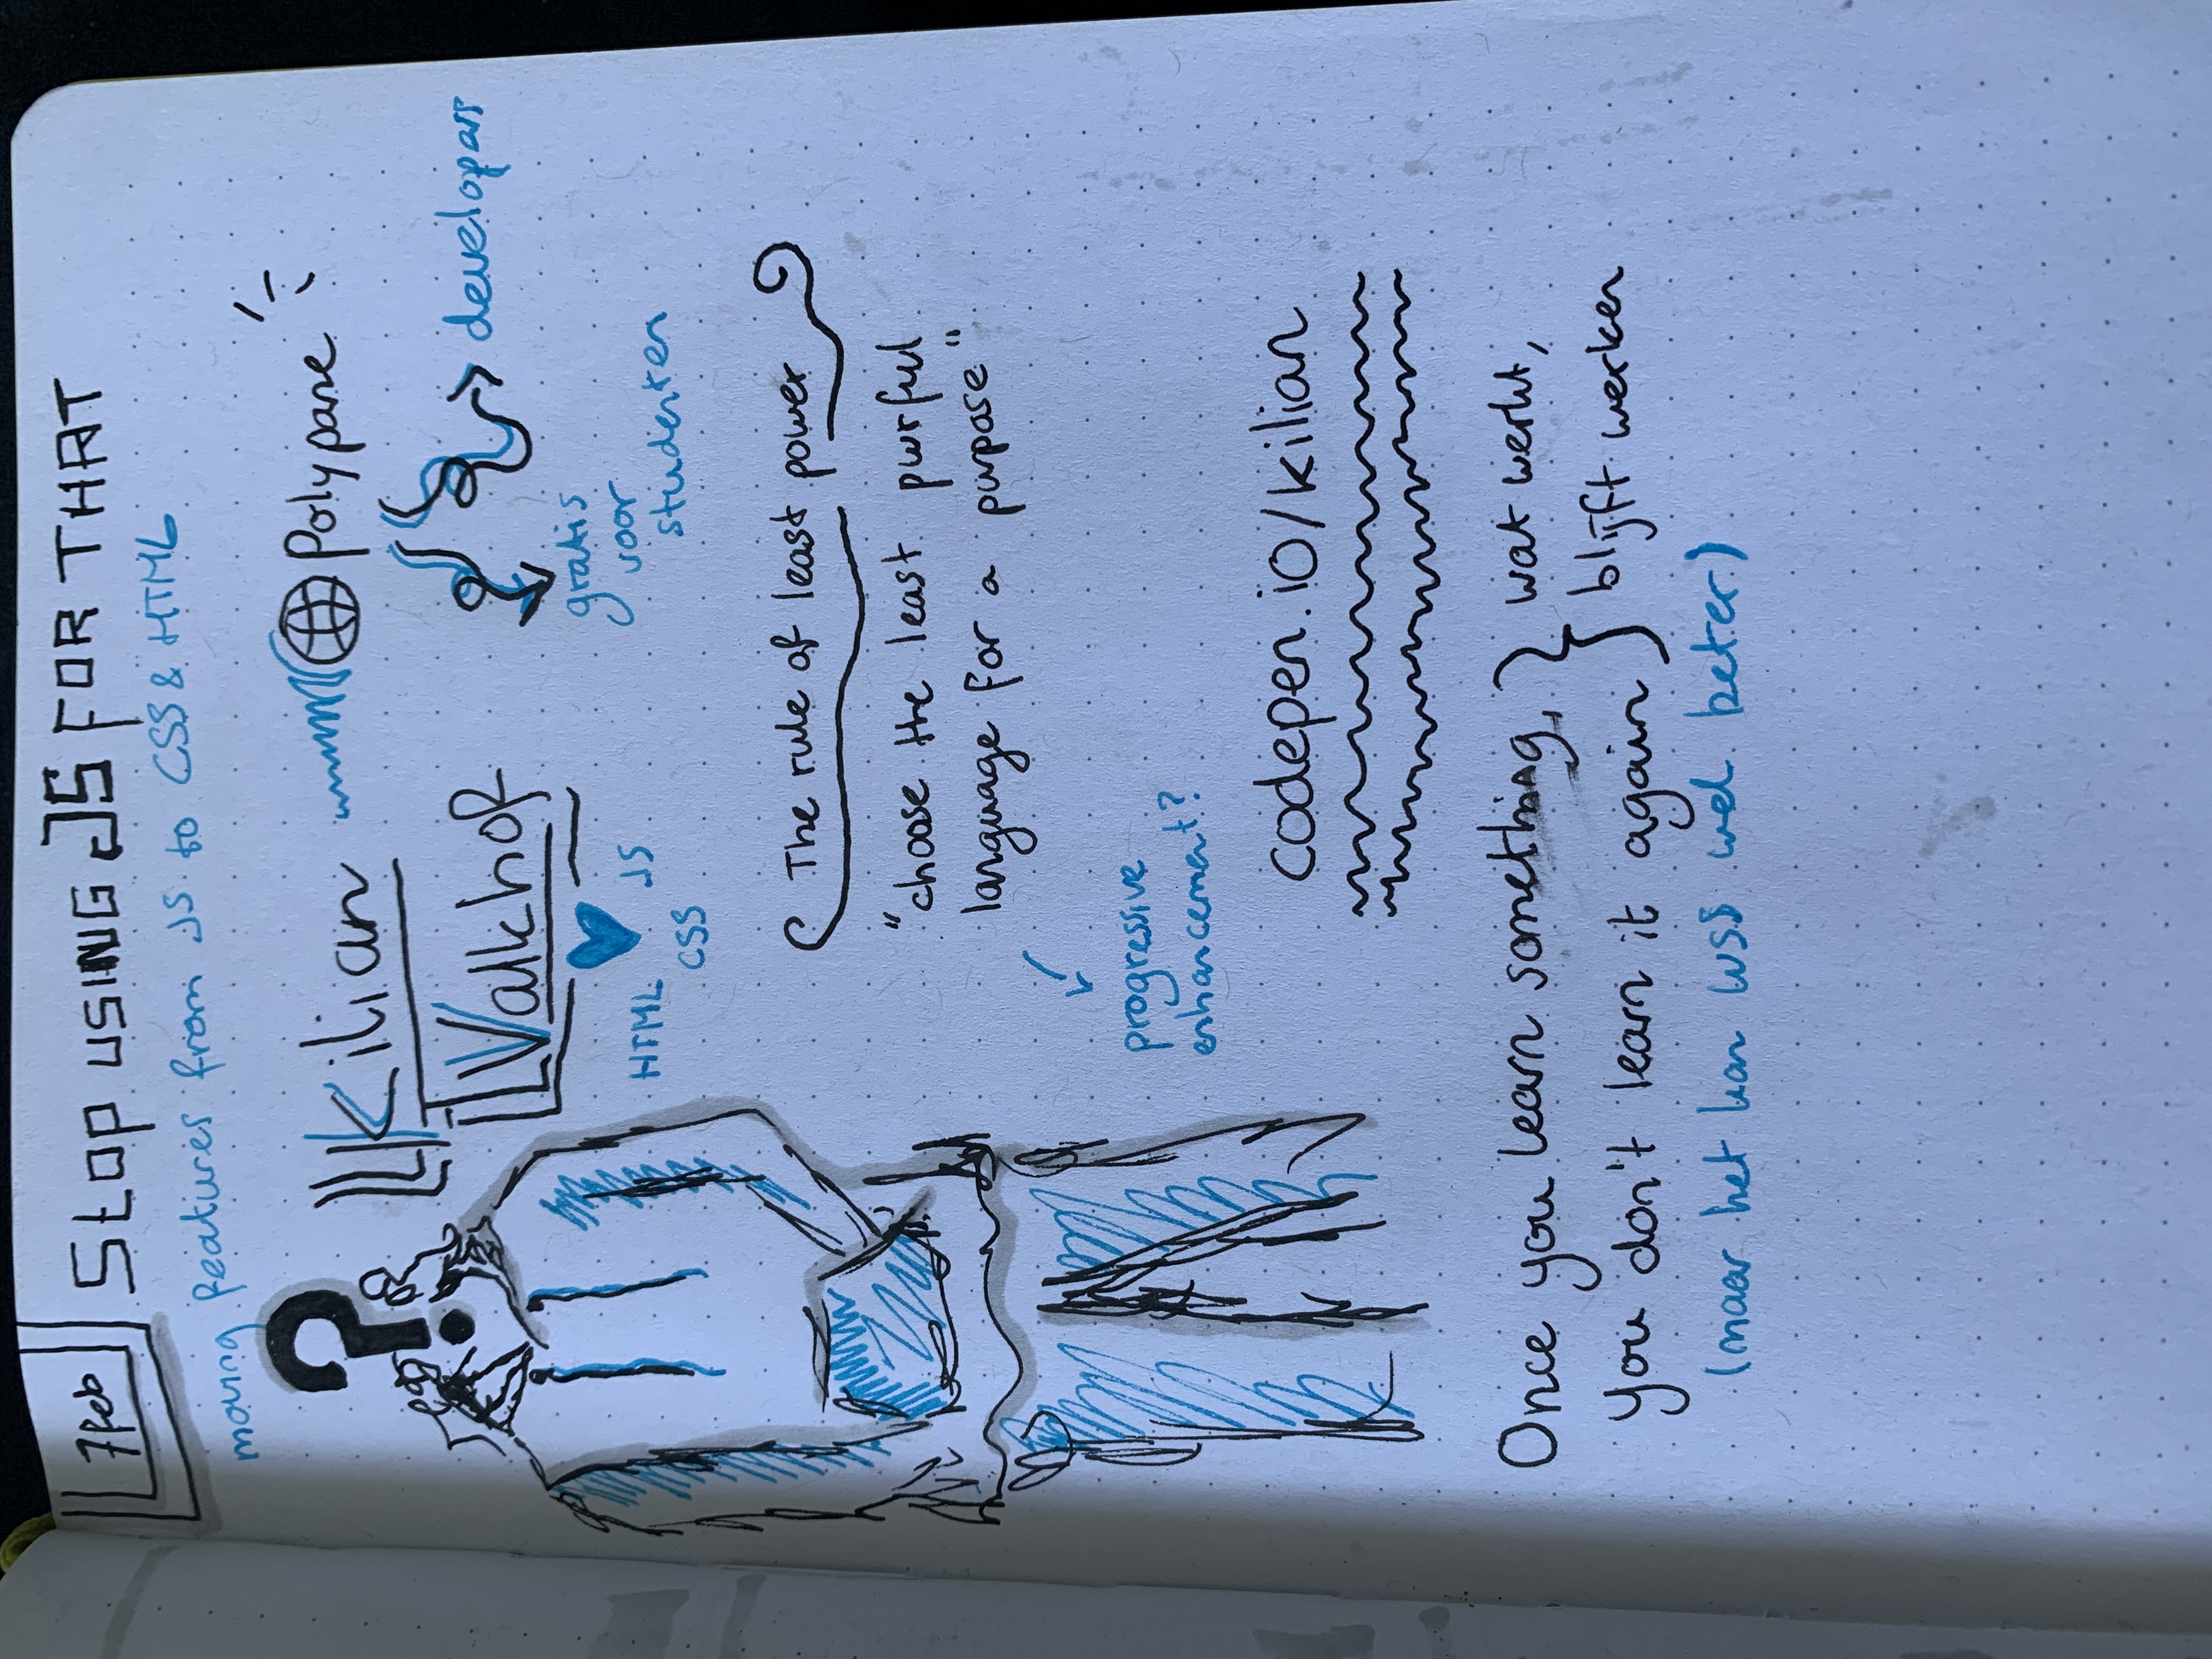 7 feb
Stop USING JS FOR THAT
moving features from JS to CSS & HTML
Kilian
Polypane
Valkhof
developers
HTML
JS
CSS
gratis
voor
studenten
The rule of least power
"choose the least pwrful
language for a purpose"
progressive
enhancement?
codepen.io/kilian
Once you learn something,
you don't learn it again
wat werkt,
blijft werken
(maar het kan wss wel beter)